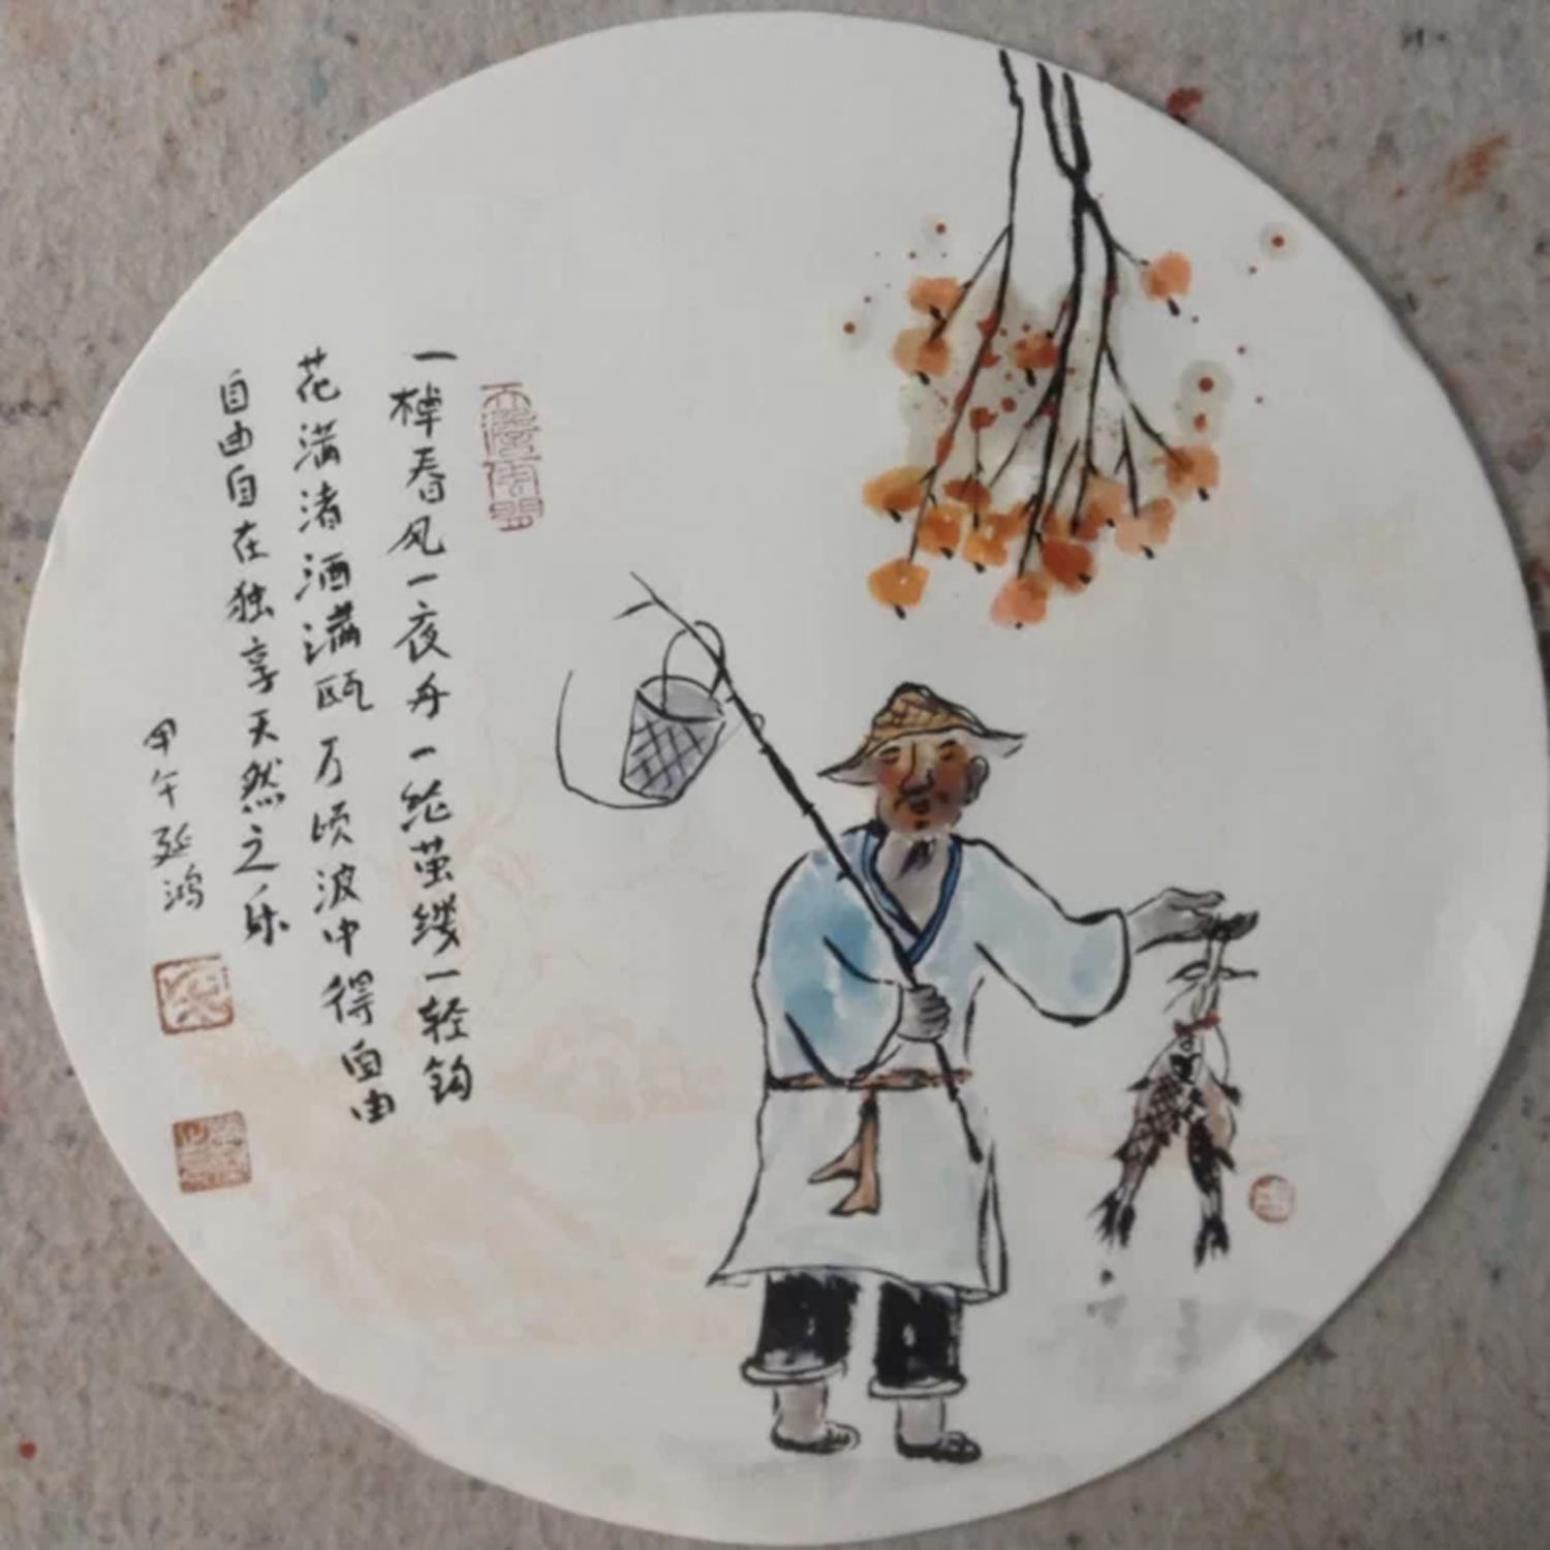 一棹春风一夜舟一纶茧缕一轻钩
花满渚酒满瓯万顷波中得自由
自由自在独享天然之乐
甲午延鸿